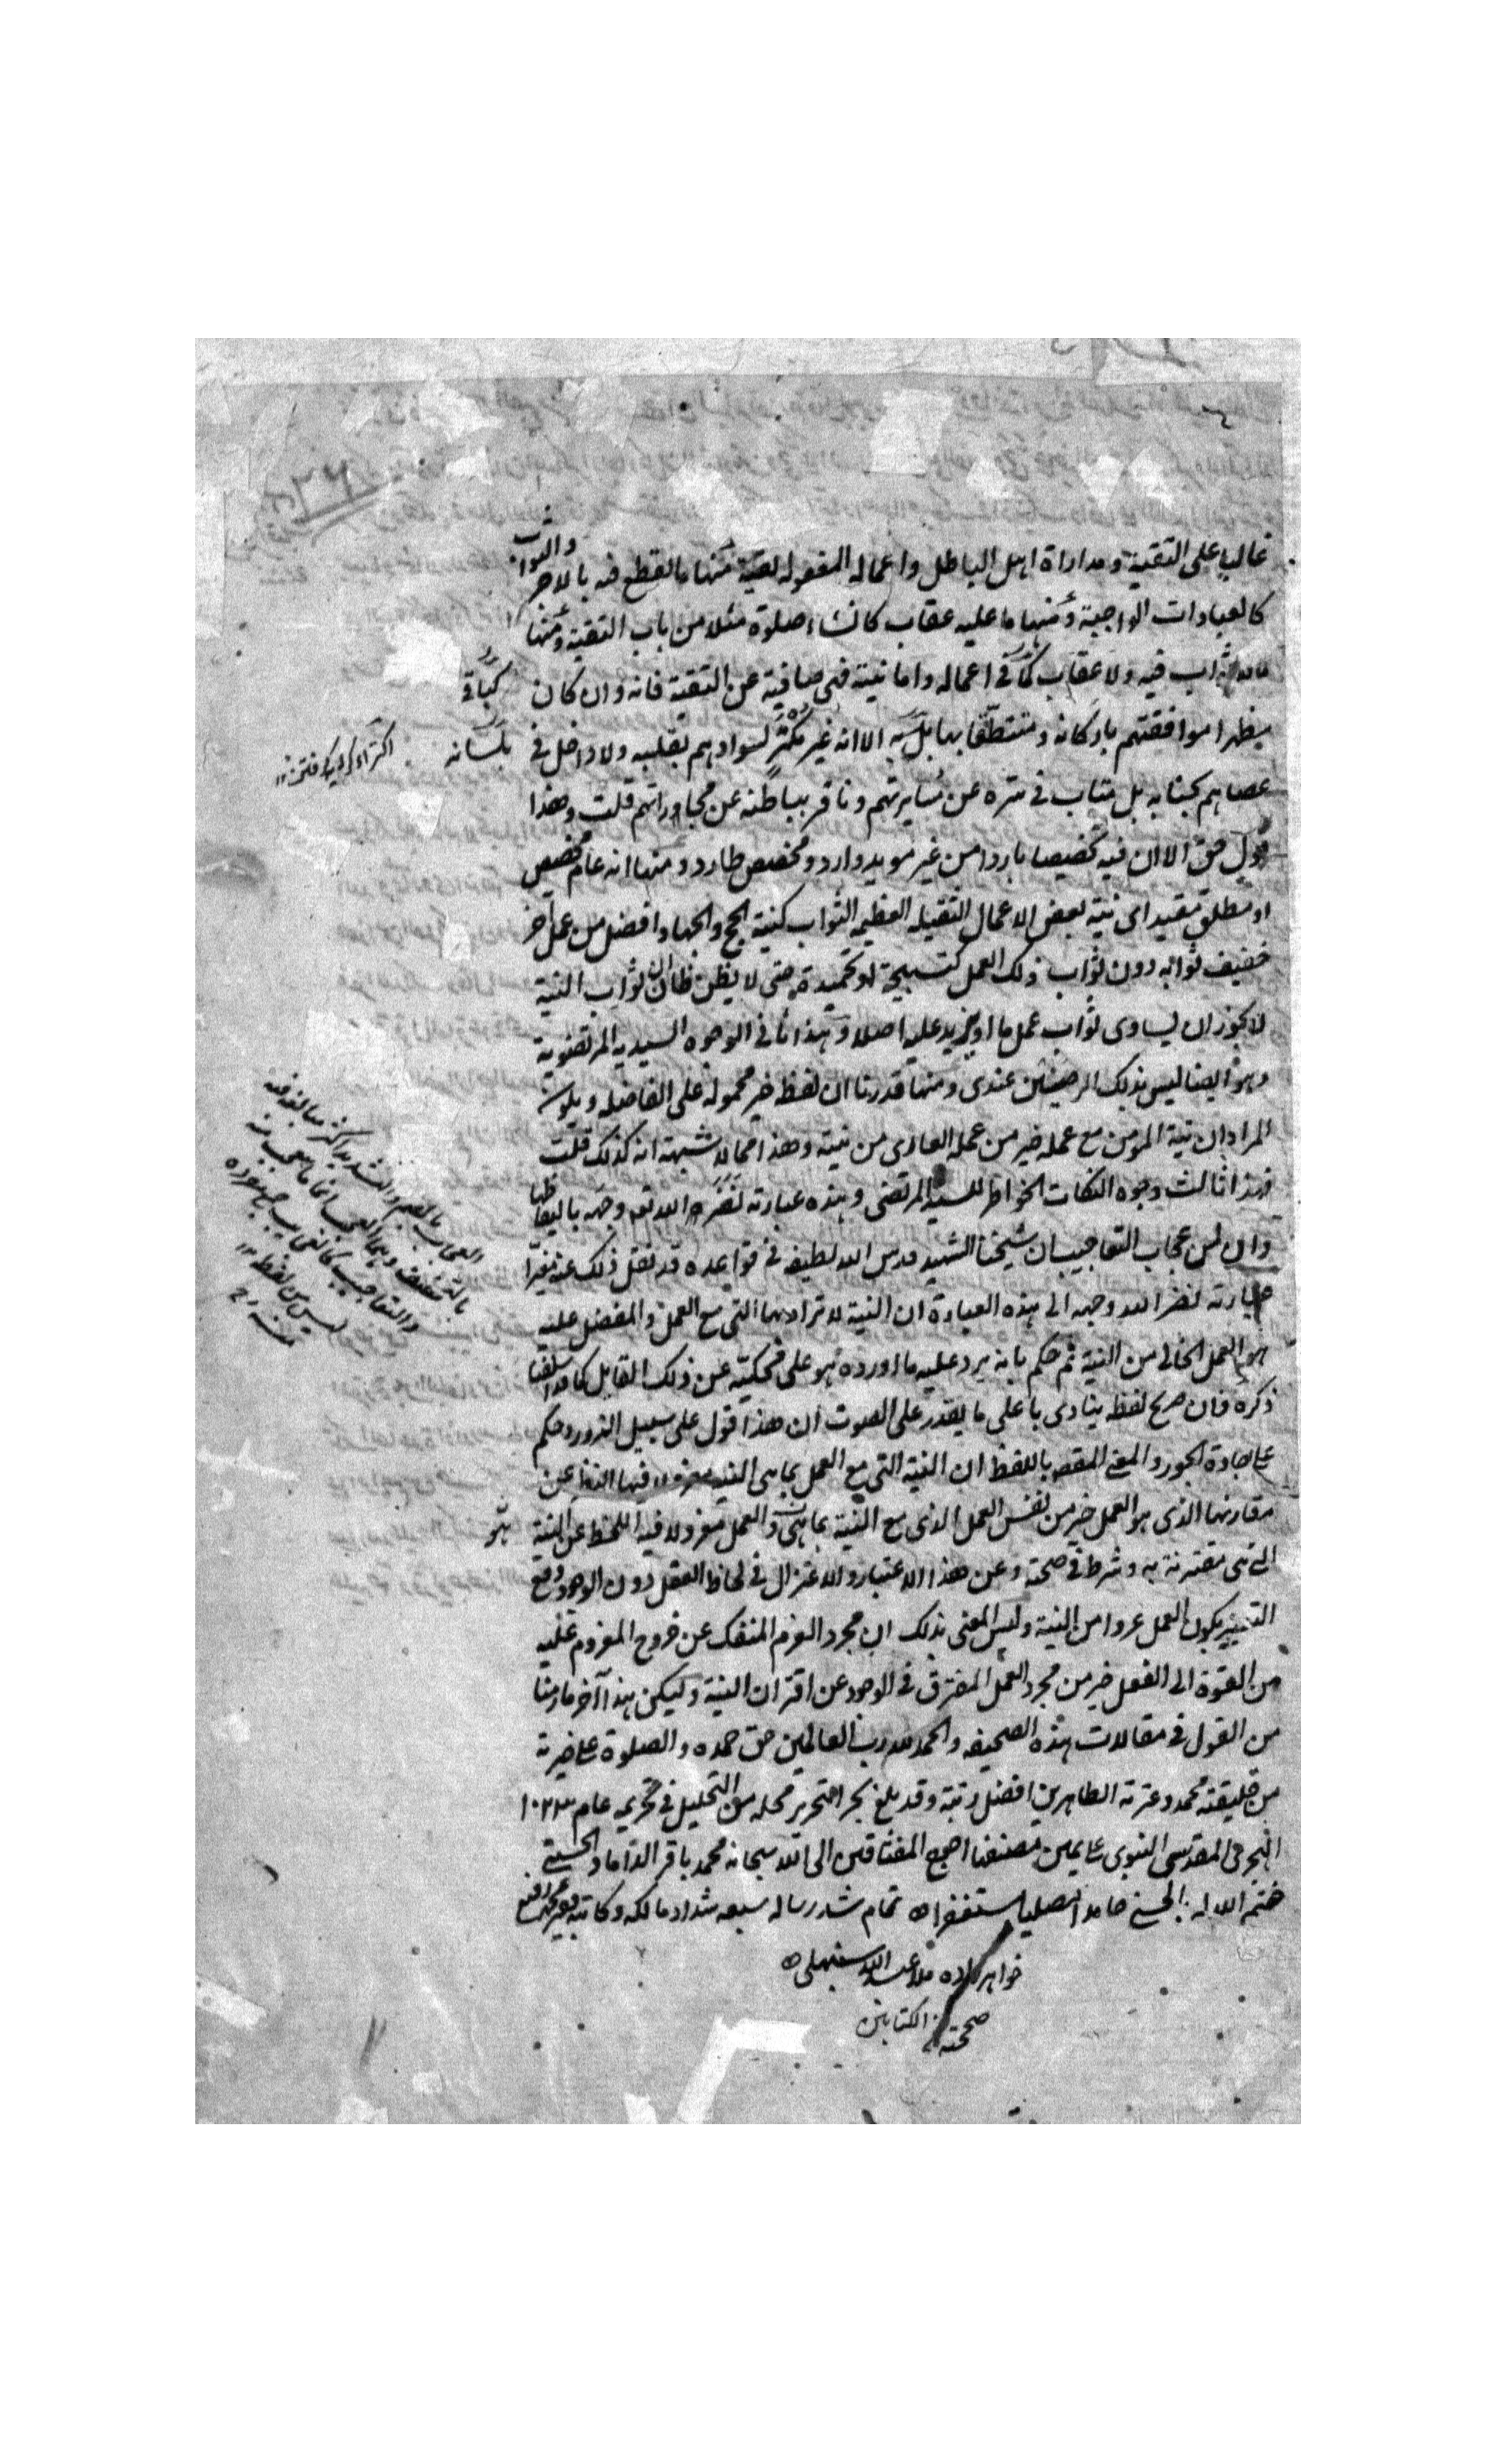 غالبا على التقية ومداراة اهل الباطل واعماله المفعولة لقية منها ما لقطع فيه بالاجر والثواب
كالعبادات الواجبة ومنها ما عليه عقاب كانشاء صلوة مثلا من باب التقية ومنها
ما لا ثواب فيه ولا عقاب كباقي اعماله واما نيته فهى صافية عن التقية فانه وان كان
يظهر موافقتهم باركانه و بها بلسانه الا انه غير مكثر لسوادهم بقلبه ولا داخل فى
عصاهم بجنابه بل متاب فى سره عن مسايرتهم ونافر بباطنه عن مجاوراتهم قلت وهذا
قول حق الا ان فيه تخصيصا باردا من غير مويد وارد ومخصص طارد ومنها انه عام مخصص
او مطلق مقيد اى نية بعض الاعمال الثقيله العظيمه الثواب كنية الحج والجهاد افضل من عمل آخر
خفيف ثوابه دون ثواب ذلك العمل كتسبيحة او تحميدة حتى لا يظن ظان ان ثواب النية
لا يجوز ان يساوى ثواب عمل ما او يزيد عليه اصلا وهذا ثانى الوجوه السيديه المرتضوية
وهو ايضا ليس بذلك الرصين عندى ومنها قدرنا ان لفظة خير محمولة على الفاضله ويكون
المراد ان نية المومن مع عمله خير من عمله العارى من نيته وهذا مما لا شبهة انه كذلك قلت
فهذا ثالث وجوه النكات الخواطر للسيد المرتضى وهذه عبارته نضر الله تعه وجهه بالفاظها
وان من عجاب التعاجيب ان شيخنا الشهيد قدس الله لطيفه فى قواعده قد نقل ذلك عنه مغيرا
عبارته نضر الله وجهه الى هذه العبارة ان النية لا تراد بها التى مع العمل والمفضل عليه
هو العمل الخالى من النية ثم حكم بانه يرد عليه ما اورده هو على عن ذلك القايل كما قد اسلفنا
ذكره فان صريح لفظه ينادى باعلى ما يقدر على الصوت ان هذا قول على سبيل الزور وحكم
على جادة الجور والمعنى المقصود باللفظ ان النية التى مع العمل بما هى النية معزولا فيها النظر عن
مقارنها الذى هو العمل خير من نفس العمل الذى مع النية بما هو العمل معزولا فيه اللحظ عن النية
التى هى مقترنة به وشرط فى صحته وعن هذا الاعتبار والاعتزال فى لحاظ العقل دون الوجود وقع
التعبير بكون العمل عروا من النية وليس المعنى بذلك ان مجرد العزم المنفك عن خروج المعزوم عليه
من القوة الى الفعل خير من مجرد العمل المفترق فى الوجود عن اقتران النية وليكن هذا آخر ما رمنا
من القول فى مقالات هذه الصحيفه والحمد لله رب العالمين حق حمده والصلوة على خيرته
من خليقته محمد وعترته الطاهرين افضل رتبة وقد بلغ بحر التحرير محله من التحليل فى تحريمه عام ١٠٢٣
الهجرى المقدسى النبوى على يمين مصنفها احوج المفتاقين الى الله سبحانه محمد باقر الداماد الحسينى
ختم الله له بالحسنى حامدا مصليا مستغفرا تمام شد رساله سبعه شداد مالكه وكاتبه
خواهر زاده ملا عبد الله سنبهلى
صححته الكتابين
بلسانه
هو
العجاب بالضم والتشديد اكثر مبالغة منه
بالتخفيف وهما العجب اى ما يتعجب منه
والتعاجيب كالغرايب جمع مفرده
ليس من لفظه
منه